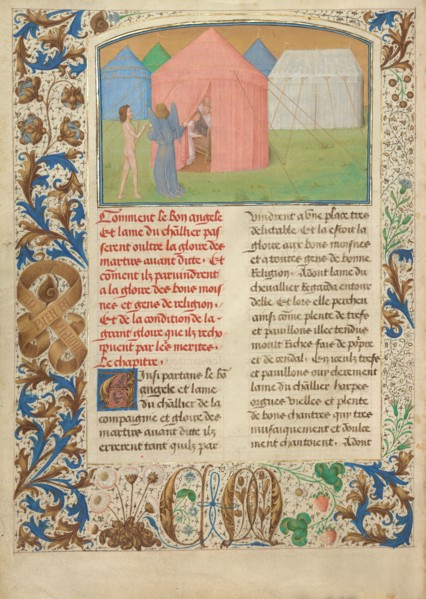 Comment le bon angele
Et lame du chlĩier pas
serent oultre la gloire des
martirs auant ditte. Et
cõment ilz paruindrent
a la gloire des bons moi
nes et gens de religion.
Et de la condition de la
grant gloire que ilz rechoi
puent par leˢ merites.
Le chapitre.
Ainsi partans le bõ
angele et lame
du chĩlier de la
compaignie et gloire des
martirs auant ditte ilz
errerent tant quilz par
vindrent a vne place tres
delitable. Et la estoit la
gloire aux bons moisnes
et a toutes gens de bonne
Religion. Adont lame du
cheuallier regarda entour
delle. Et lors elle percheu
ainsi cõme plente de trefs
et pauillons illec tendus
moult riches fais de pourpre
et de cendal. En iceulz trefs
et pauillons ouy clerement
lame du chĩlier harpes
orgues vielles et plente
de bons chantres qui tres
musicquament et doulce
ment chantoient. Adont
CM